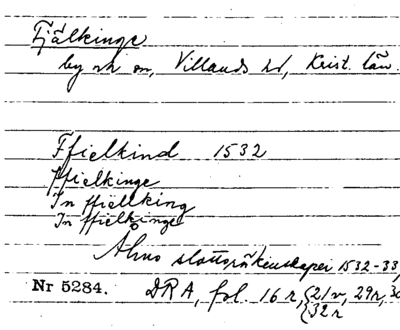 Fjälkinge
by och sn, Villands hd, Krist. län.
Ffielkind 1532
ffielkinge
In ffiellking
In ffielkinge
Åhus slottsräkenskaper 1532-33,
Nr 5284. DRA, fol. 16 r, 21 v, 29 r, 30
32 r